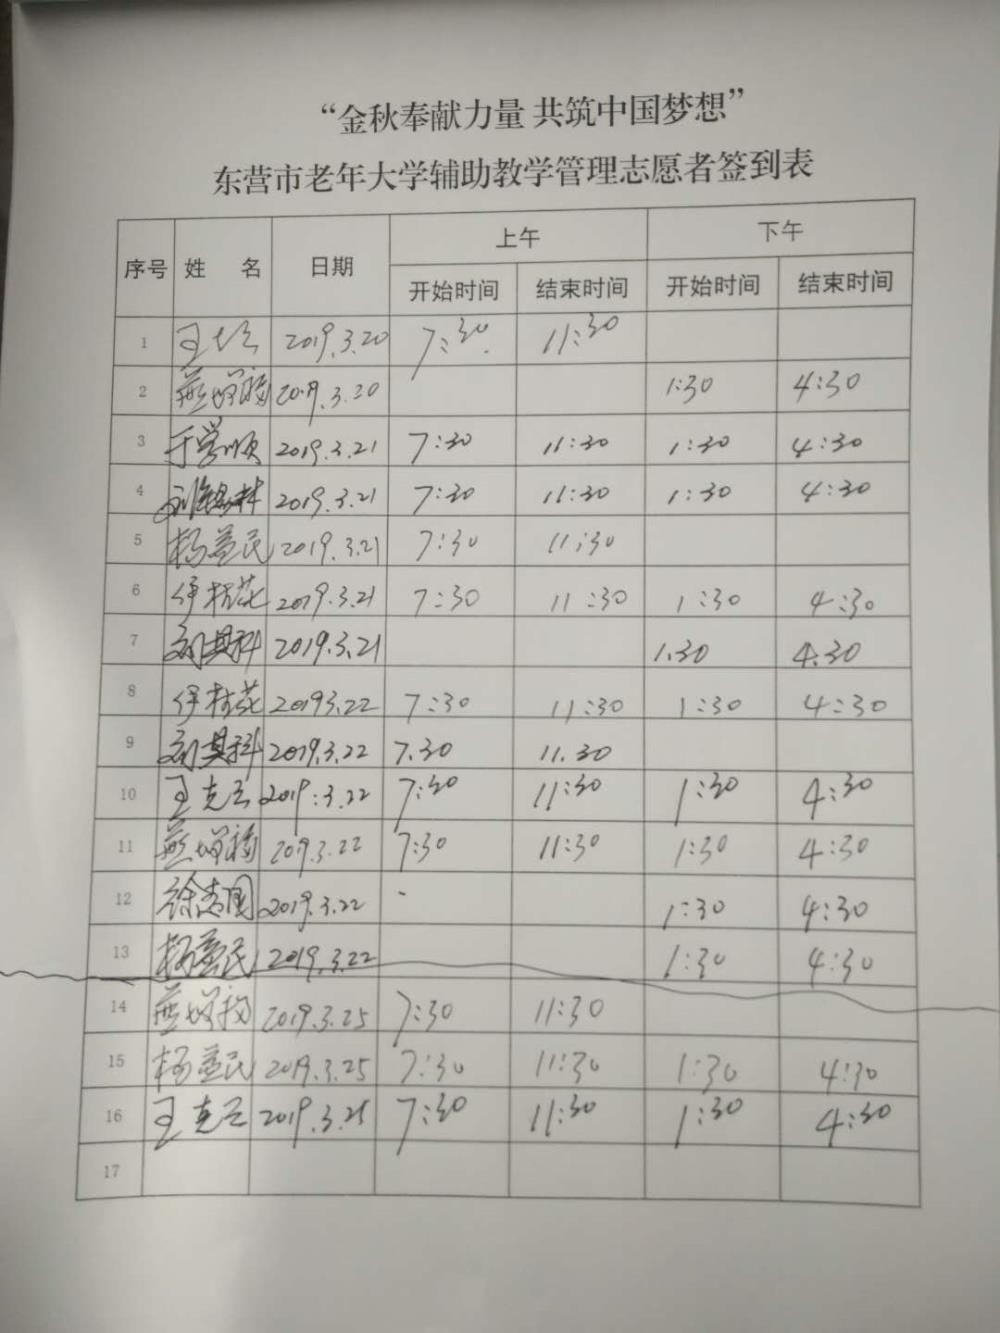 “金秋奉献力量 共筑中国梦想”
东营市老年大学辅助教学管理志愿者签到表
序号 姓 名 日期 上午 下午
开始时间 结束时间 开始时间 结束时间
1 2019.3.20 7:30 11:30
2 2019.3.20 1:30 4:30
3 于学顺 2019.3.21 7:30 11:30 1:30 4:30
4 2019.3.21 7:30 11:30 1:30 4:30
5 杨益民 2019.3.21 7:30 11:30
6 伊桂花 2019.3.21 7:30 11:30 1:30 4:30
7 刘其科 2019.3.21 1.30 4.30
8 伊桂花 20193.22 7:30 11:30 1:30 4:30
9 刘其科 2019.3.22 7.30 11.30
10 王克云 2019:3.22 7:30 11:30 1:30 4:30
11 2019.3.22 7:30 11:30 1:30 4:30
12 徐志国 2019.3.22 1:30 4:30
13 杨益民 2019.3.22 1:30 4:30
14 2019.3.25 7:30 11:30
15 杨益民 2019.3.25 7:30 11:30 1:30 4:30
16 王克云 2019.3.25 7:30 11:30 1:30 4:30
17